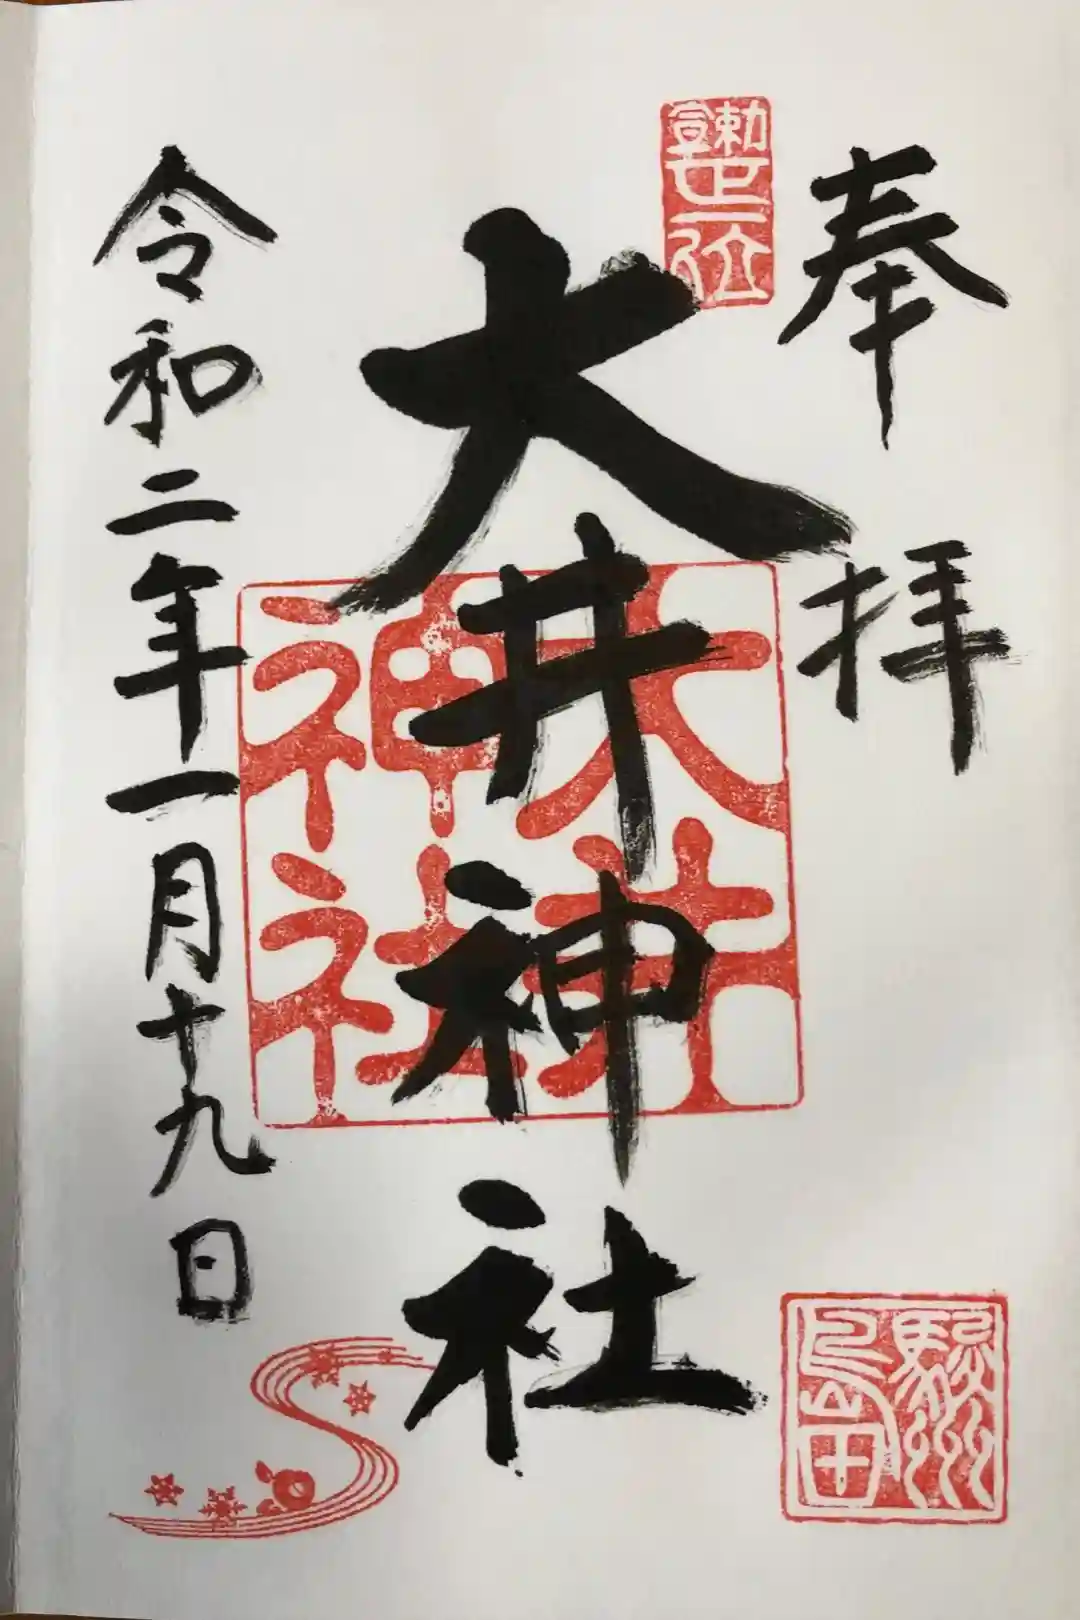 奉拝
勅宣正一位
大井神社
大井神社
駿州島田
令和二年一月十九日